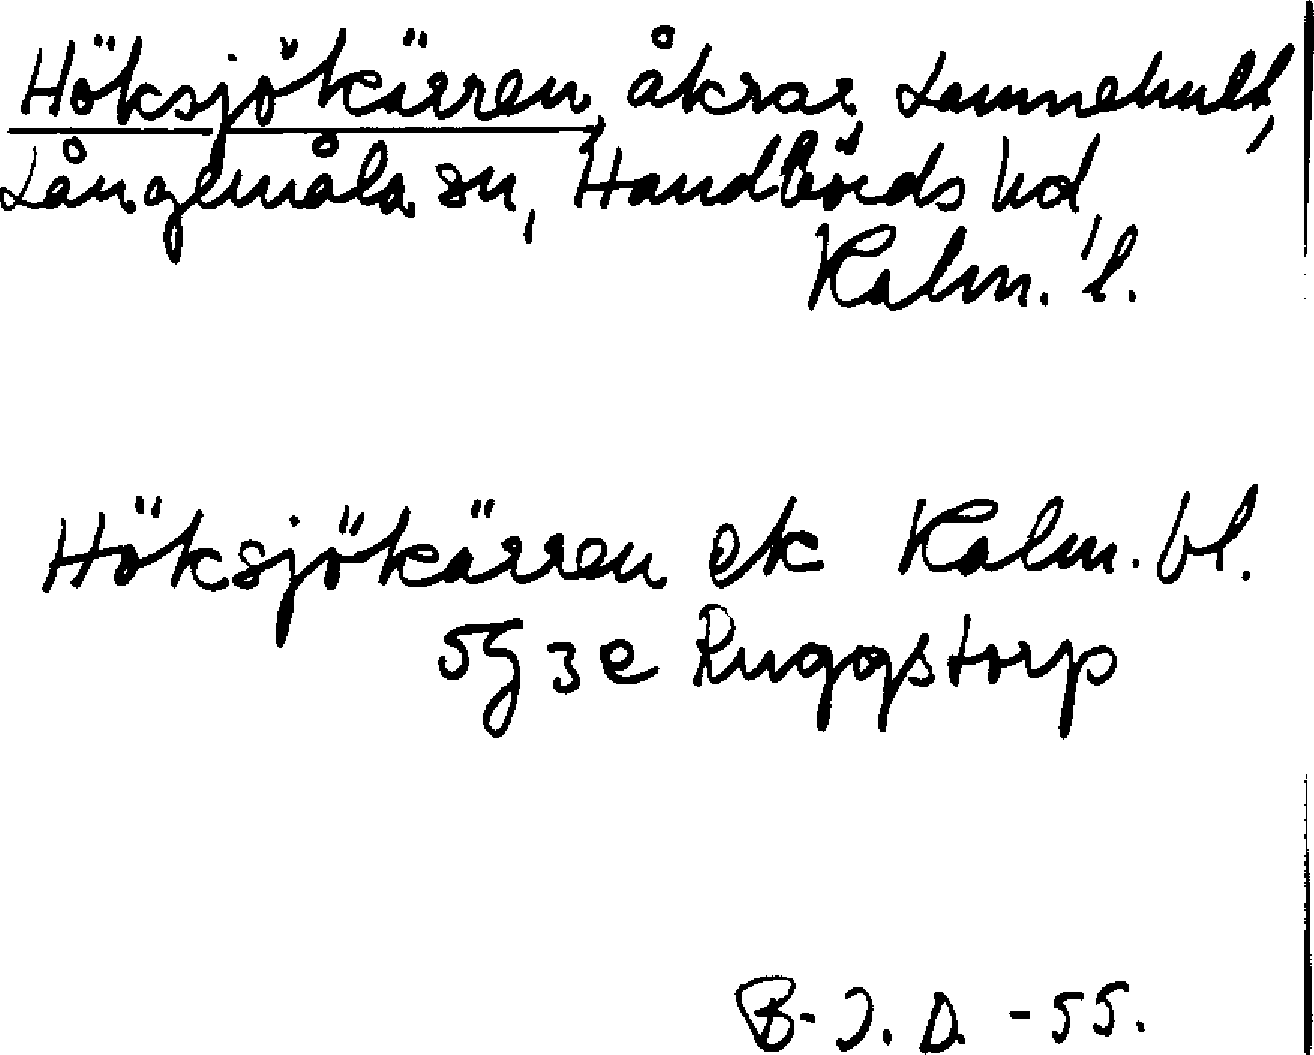 Höksjökärren, åkrar, Lannehult,
Långemåla sn, Handbörds hd,
Kalm. l.
Höksjökärren ek Kalm. bl.
5G 3e Ruggstorp
B-J. D. -55.